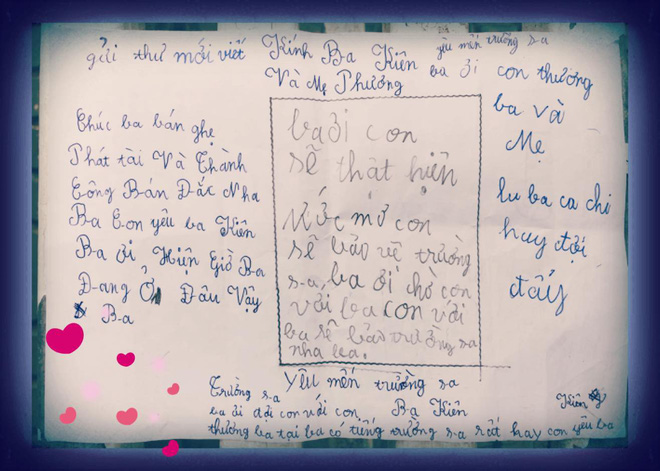 gửi thư mới viết Kính Ba Kiên yêu mến trường sa
Và Mẹ Phương ba ơi con thương
ba và
Mẹ
Chúc ba bán ghẹ
Phát tài Và Thành
Công Bán Đắc Nha
Ba Con yêu ba Kiên
Ba ơi Hiện Giờ Ba
Đang Ở Đâu Vậy
Ba
ba ơi con
sẽ thật hiện
Ước mơ con
sẽ bảo vệ trường
sa, ba ơi chờ con
với ba con với
ba sẽ bảo trường sa
nha ba.
lu ba ca chi
huy đợi
đấy
Yêu mến trường sa
Trường sa
ba ơi đợi con với con Ba Kiên
Kiên
thương ba tại ba có tiếng trường sa rất hay con yêu ba